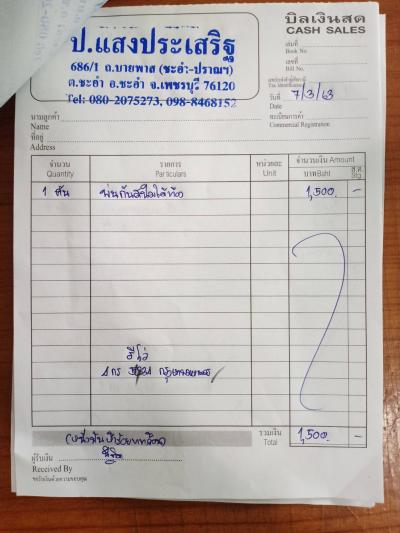 บิลเงินสด
CASH SALES
ป.แสงประเสริฐ
686/1 ถ.บายพาส (ชะอำ-ปราณฯ)
ต.ชะอำ อ.ชะอำ จ.เพชรบุรี 76120
Tel: 080-2075273, 098-8468152
เล่มที่
Book No.
เลขที่
Bill No.
เลขประจำตัวผู้เสียภาษี
Tax Identification
วันที่ 7/3/63
Date
ทะเบียนการค้า
Commercial Registration
นามลูกค้า
Name
ที่อยู่
Address
จำนวน รายการ หน่วยละ จำนวนเงิน Amount
Quantity Particulars Unit บาท Baht ส.ต. Stg.
1 คัน พ่นกันสนิมใต้ท้อง 1,500. -
อีโก้
(หนึ่งพันห้าร้อยบาทถ้วน) รวมเงิน 1,500. -
Total
ผู้รับเงิน
Received By
ขอรับเงินด้วยความขอบคุณ